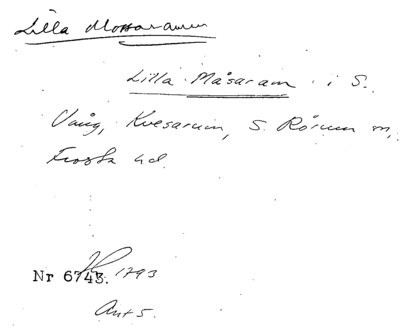 Lilla Mossaramen
Lilla Måsaram i S.
Vång, Kvesarum, S. Rörum sn,
Frosta hd.
Nr 6743. 1793
Ant 5.